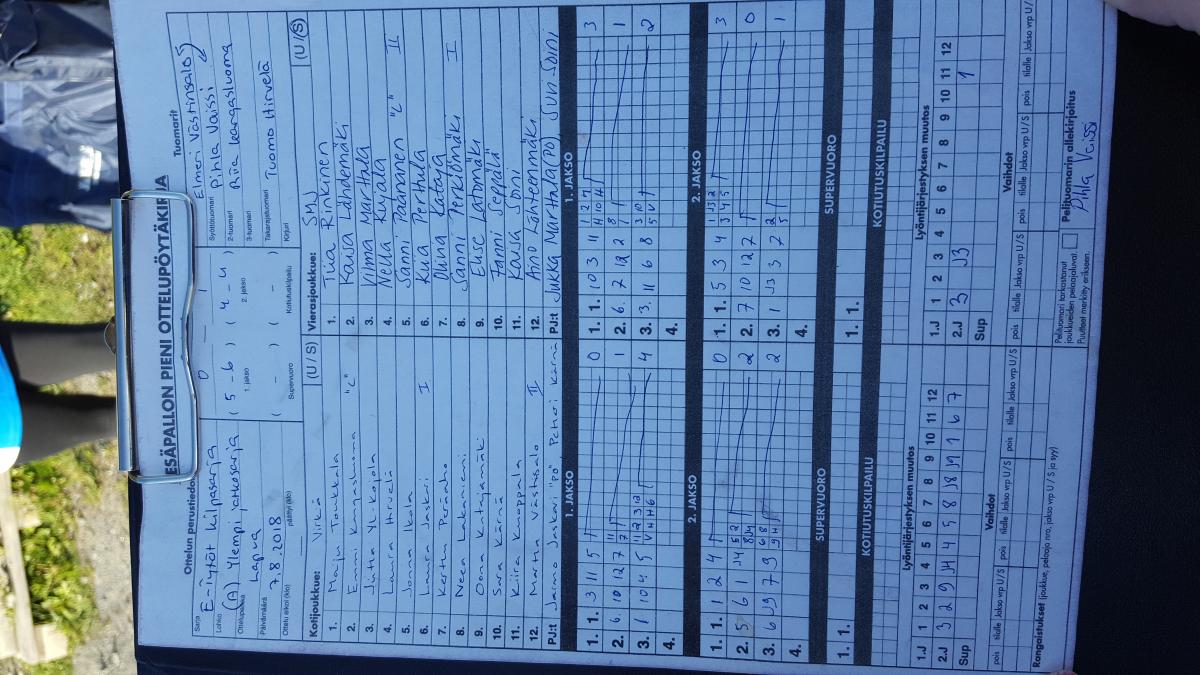 ESÄPALLON PIENI OTTELUPÖYTÄKIR A
Ottelun perustiedo
Tuomarit
Sarja E-tytöt kilpasarja
Lohko (A) Ylempi jatkosarja
Ottelupaikka Lapua
Päivämäärä 7.8.2018
Ottelu alkoi (klo) päättyi (klo)
0 - 1
( 5 - 6 ) ( 4 - 4 )
1. jakso 2. jakso
( - ) ( - )
Supervuoro Kotiutuskilpailu
Syöttötuomari Elmeri Västinsalo
2-tuomari Pihla Väissi
3-tuomari Riia Kangasluoma
Takarajatuomari
Kirjuri Tuomo Hirvelä
Kotijoukkue: Virkiä (U / S)
1. Maiju Taukkala
2. Emmi Kangasluoma "C"
3. Jutta Yli-Kojola
4. Laura Hirvelä
5. Jonna Ikola
6. Laura Jaskari I
7. Kerttu Perääho
8. Neea Lakaniemi
9. Oona Katajamäki
10. Sara Kärnä
11. Kiira Kauppala
12. Martta Västisalo II
PJ:t Jarmo Jaskari "PO" Petri Kärnä
Vierasjoukkue: SMJ (U / S)
1. Tiia Rinkinen
2. Kaisa Lähdemäki
3. Vilma Marttala
4. Nella Kujala
5. Sanni Paananen "C" II
6. Kuia Perttula
7. Oona Kataja
8. Sanni Perkiömäki I
9. Elise Latomäki
10. Fanni Seppälä
11. Kaisa Soini
12. Aino Lähteenmäki
PJ:t Jukka Marttala(PO), Suvi Soini
1. JAKSO
1. 1. 3 11 5 0
2. 6 10 12 7 1
3. 1 10 4 5 4
4.
1. JAKSO
1. 1. 10 3 11 3
2. 6. 7 12 2 1
3. 3. 11 6 8 2
4.
2. JAKSO
1. 1. 1 2 4 0
2. 5 6 1 J4 2
3. 6 J9 7 9 2
4.
2. JAKSO
1. 1. 5 3 4 3
2. 7 10 12 7 0
3. 1 J3 3 7 1
4.
SUPERVUORO
1. 1.
SUPERVUORO
1. 1.
KOTIUTUSKILPAILU
KOTIUTUSKILPAILU
Lyöntijärjestyksen muutos
1 2 3 4 5 6 7 8 9 10 11 12
1.J
2.J 3 2 9 J4 4 5 8 J8 J9 1 6 7
Sup
Lyöntijärjestyksen muutos
1 2 3 4 5 6 7 8 9 10 11 12
1.J
2.J 3 J3 1
Sup
Vaihdot
pois tilalle Jakso vrp U/S pois tilalle Jakso vrp U/S pois tilalle Jakso vrp U/S
Vaihdot
pois tilalle Jakso vrp U/S pois tilalle Jakso vrp U/S pois tilalle Jakso vrp U/
Rangaistukset (joukkue, pelaaja nro, jakso vrp U / S ja syy)
Pelituomari tarkastanut joukkueiden pelaajaluvat. Puutteet merkitty erikseen.
Pelituomarin allekirjoitus
Pihla Väissi